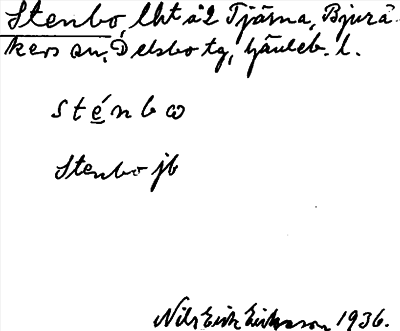 Stenbo, lht å 2 Tjärna, Bjurå-
kers sn, Delsbo tg, Gävleb. l.
sténbω
Stenbo jb
Nils Erik Eriksson 1936.